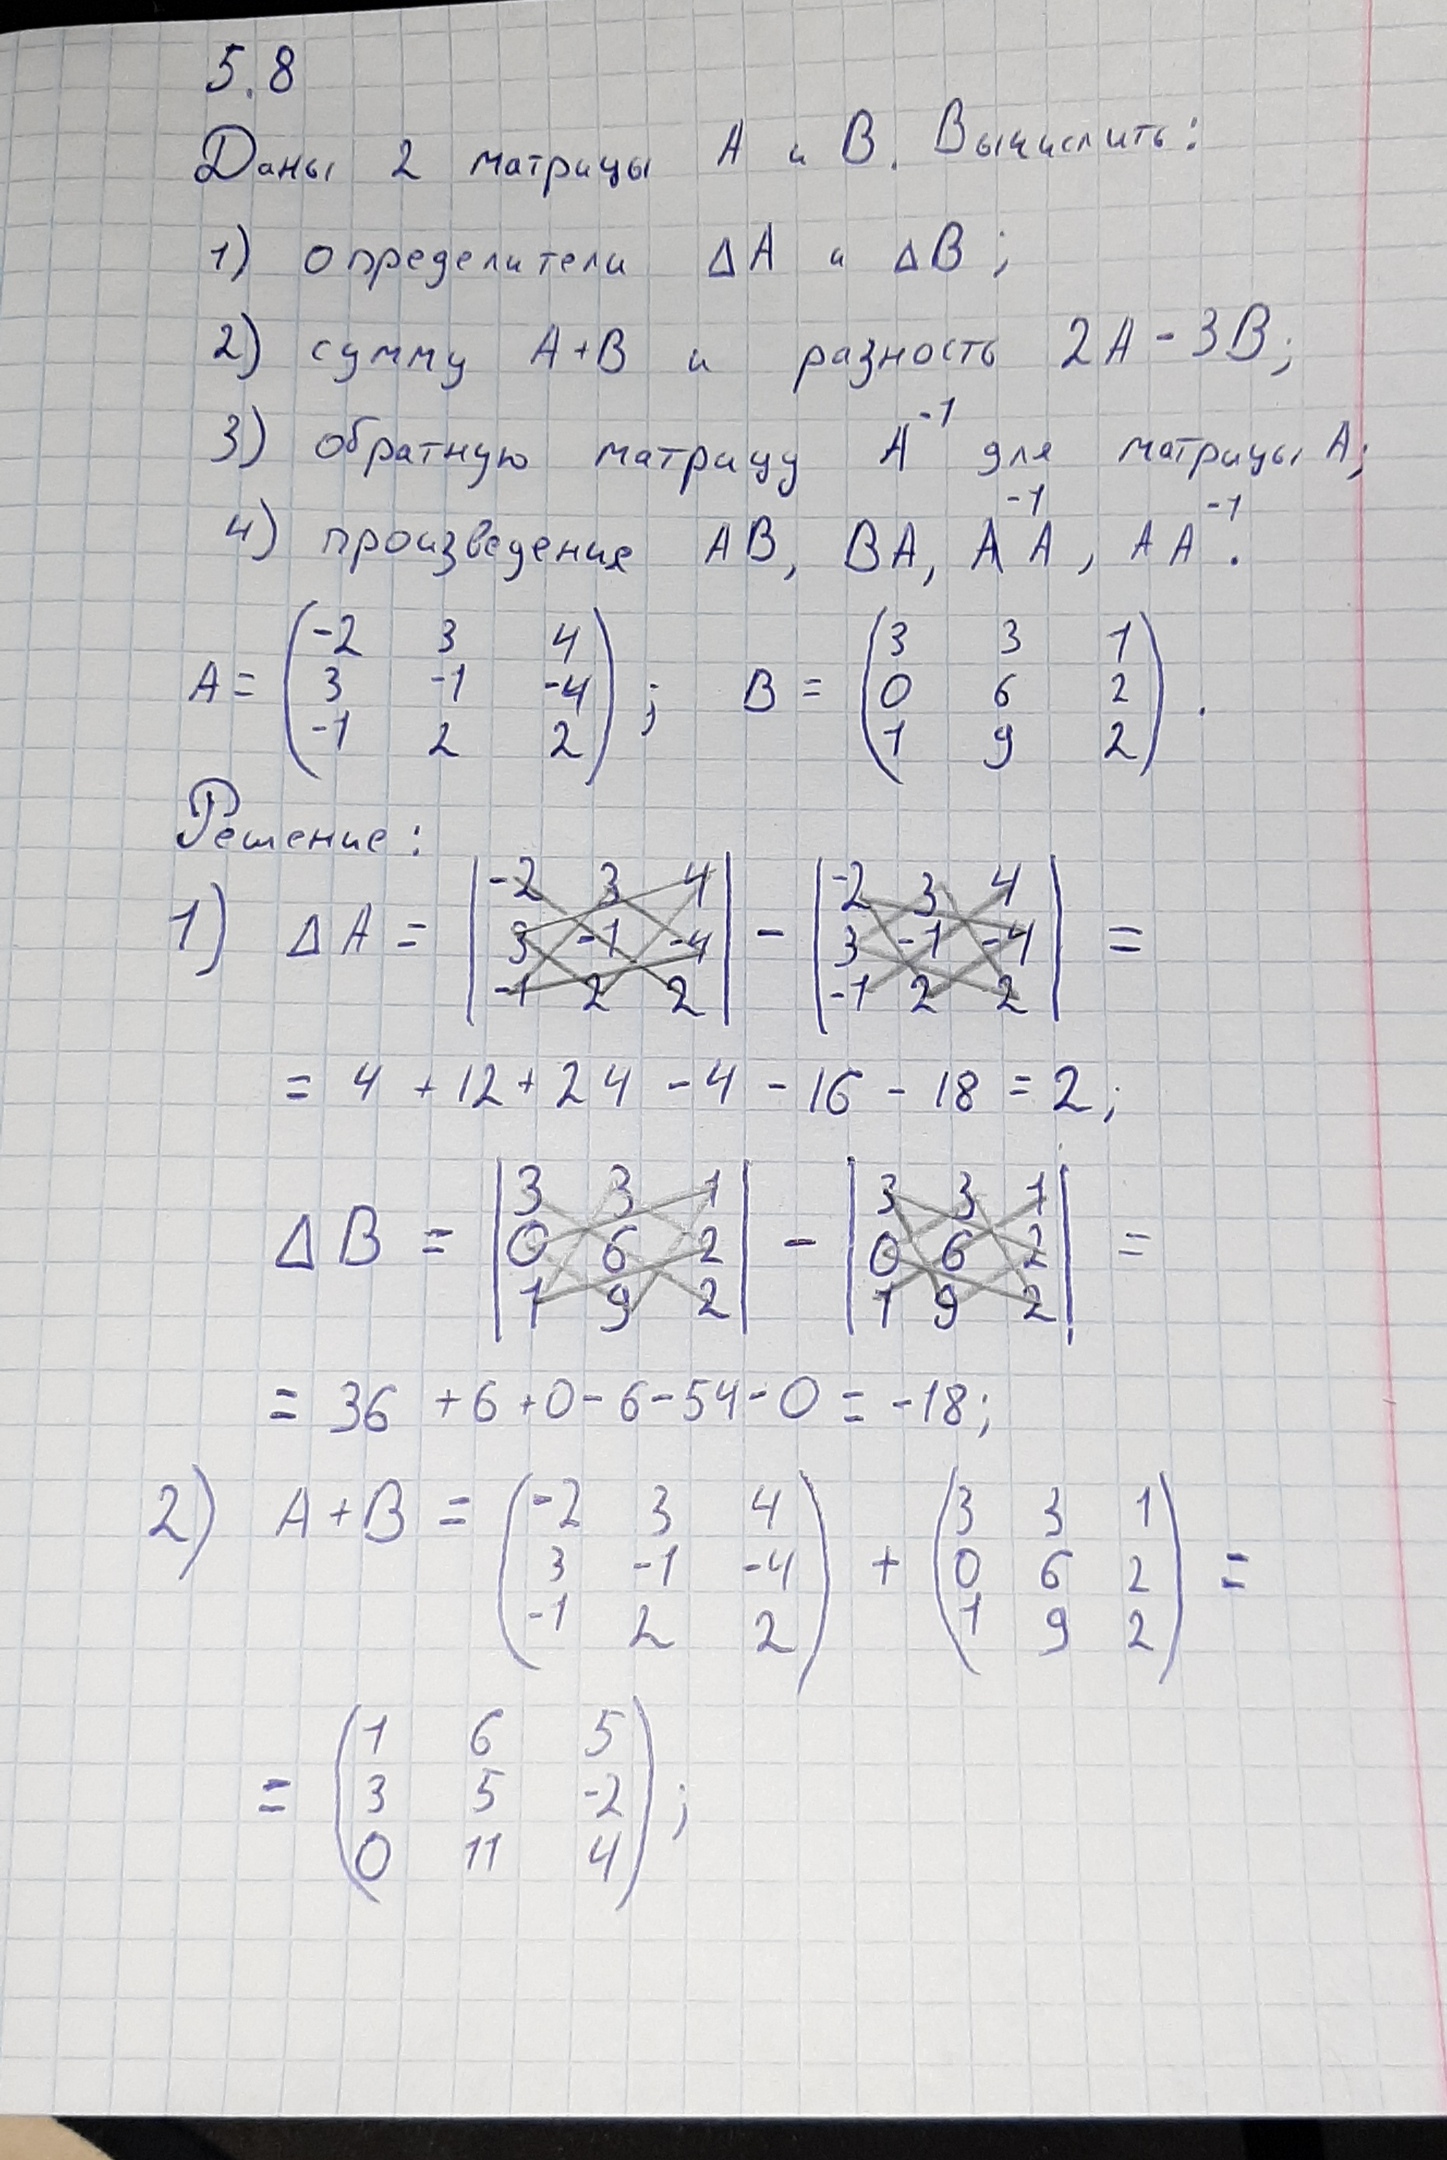 5.8
Даны 2 матрицы A и B. Вычислить:
1) определители ΔA и ΔB;
2) сумму A+B и разность 2A-3B;
3) обратную матрицу A⁻¹ для матрицы A;
4) произведение AB, BA, A⁻¹A, AA⁻¹.
-2 3 4 3 3 1
A= 3 -1 -4 ; B= 0 6 2 .
-1 2 2 1 9 2
Решение:
-2 3 4 -2 3 4
1) ΔA= 3 -1 -4 - 3 -1 -4 =
-1 2 2 -1 2 2
= 4 +12+24 -4 -16 -18 =2;
3 3 1 3 3 1
ΔB = 0 6 2 - 0 6 2 =
1 9 2 1 9 2
= 36 +6+0-6-54-0 = -18;
2) A+B = -2 3 4 3 3 1
3 -1 -4 + 0 6 2 =
-1 2 2 1 9 2
1 6 5
= 3 5 -2 ;
0 11 4